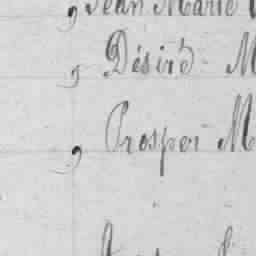 , Jean Marie
, Désiré M
, Prosper M